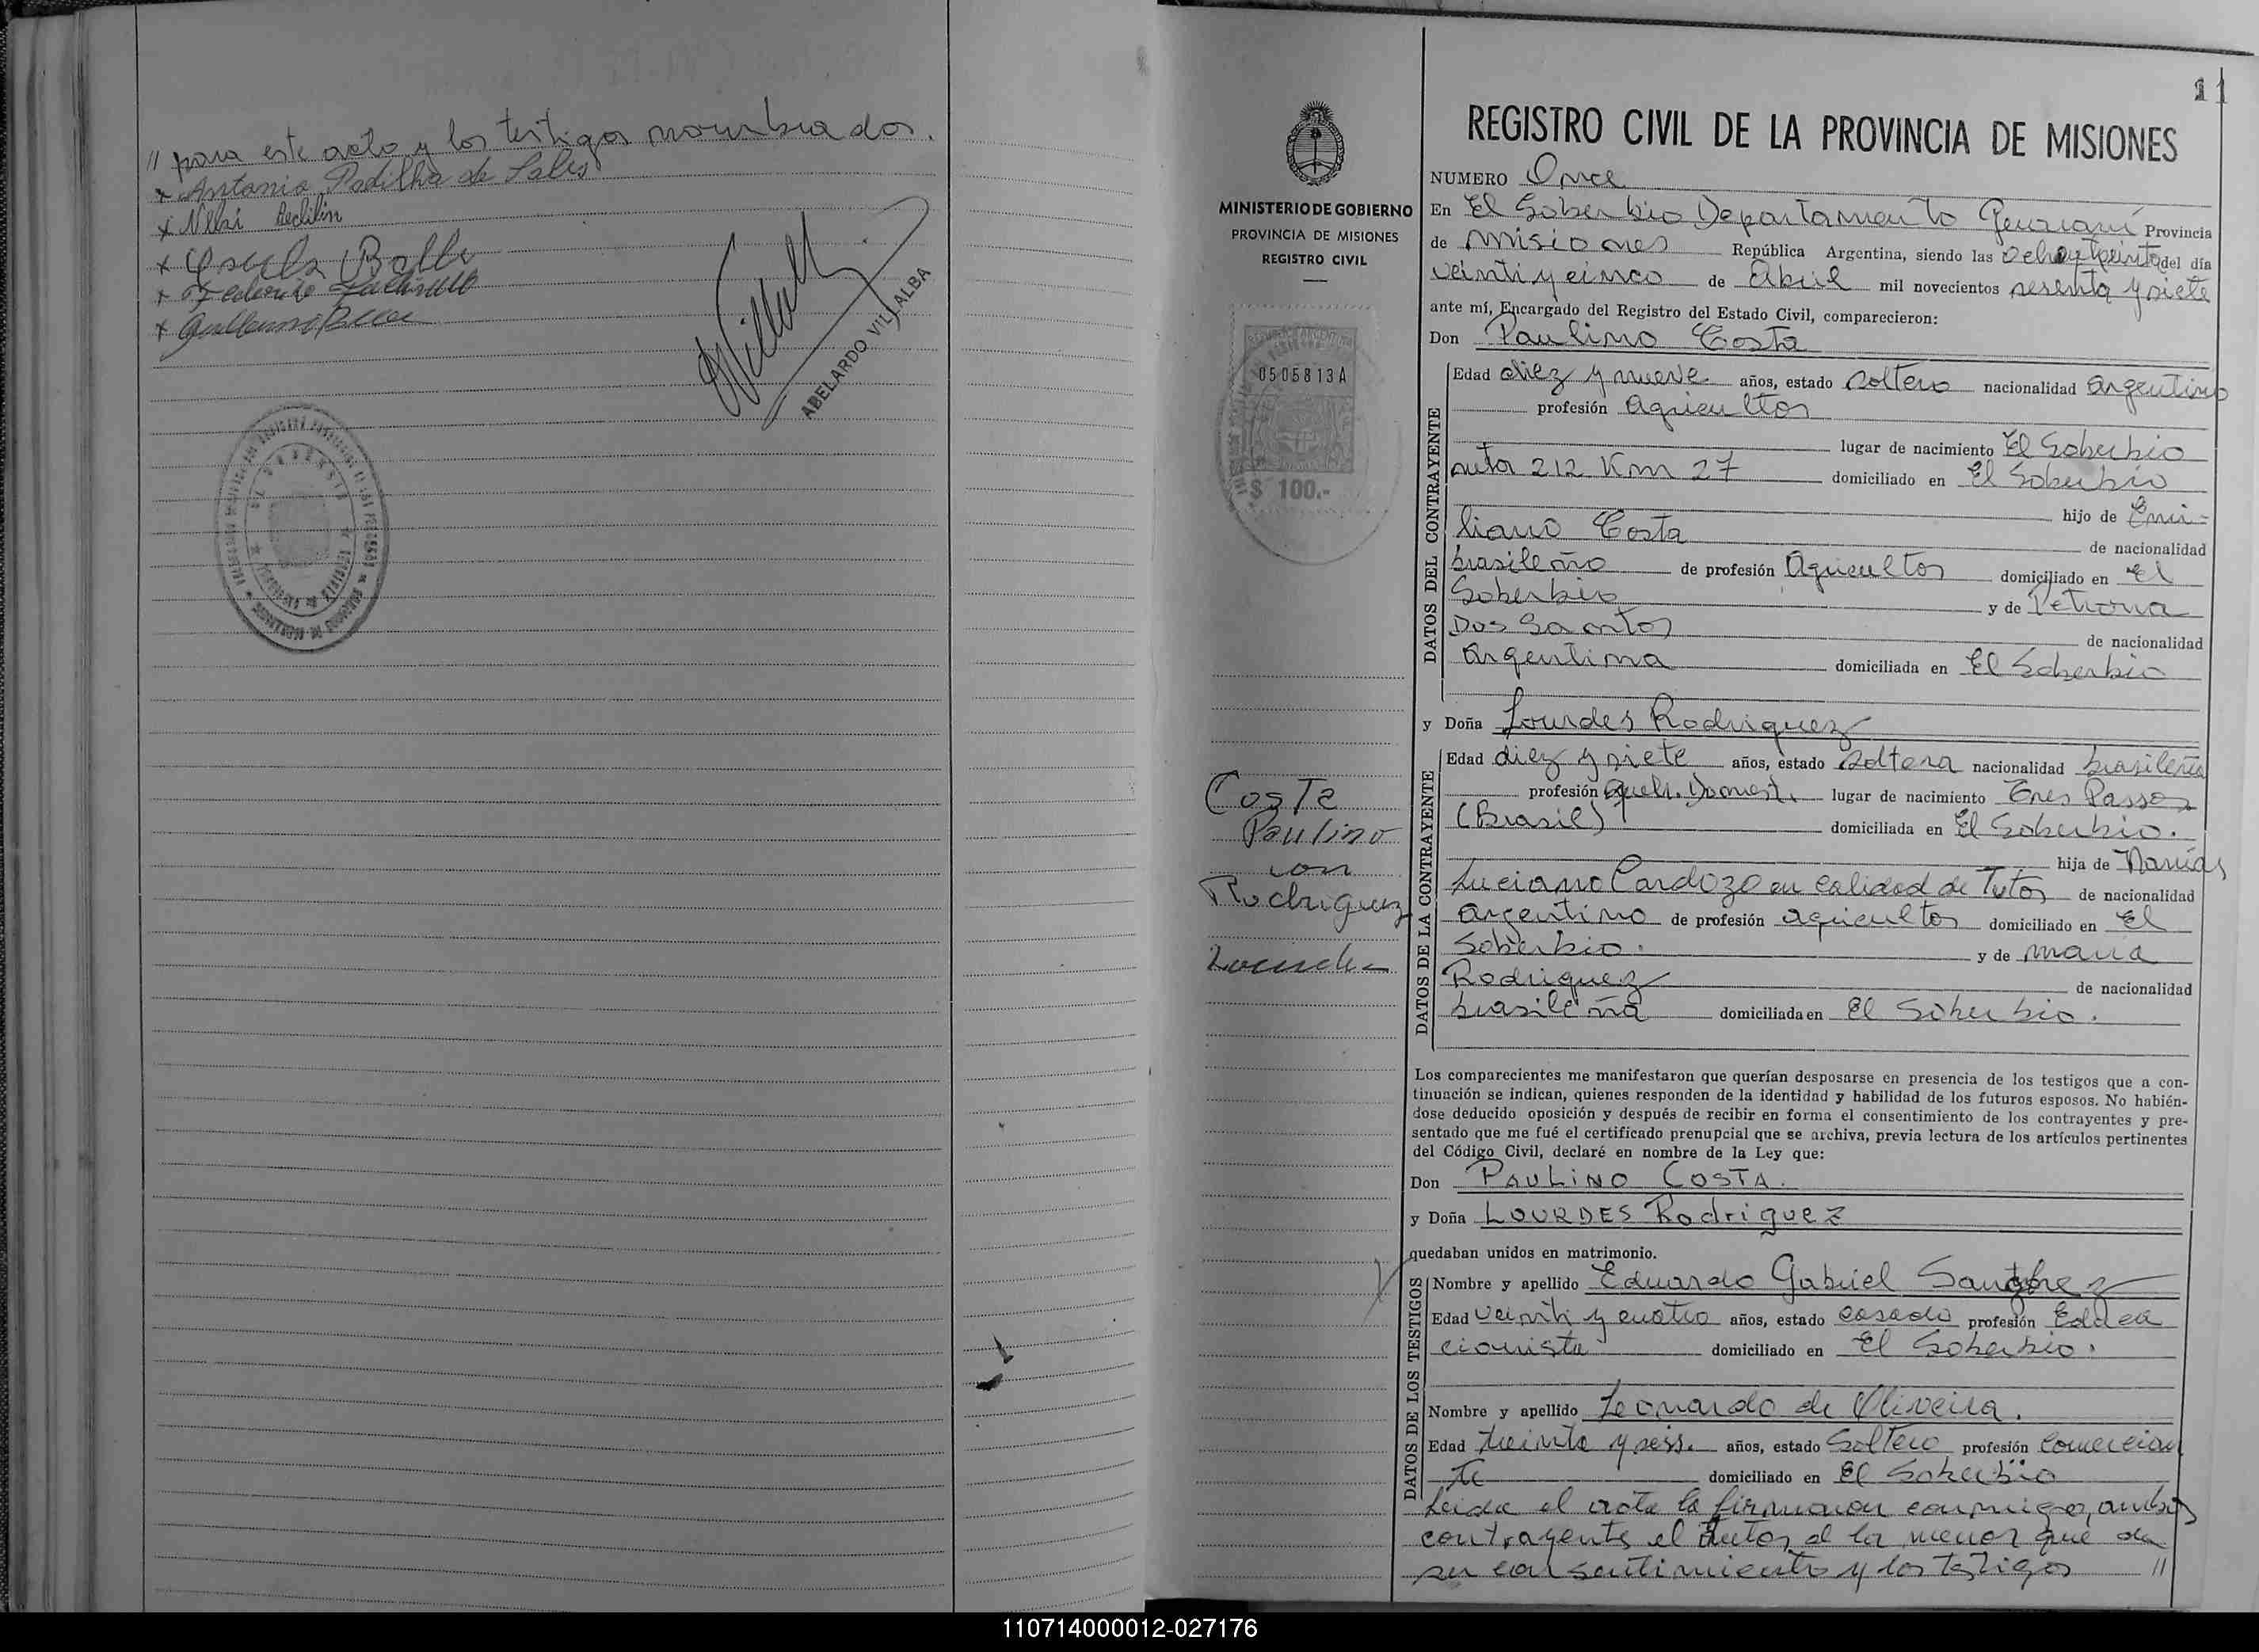 // para este acto y los testigos nombrados.
x Antonio Padilha de Sales
x Nelsi
x
x Federico
x Guillermo
ABELARDO VILLALBA
11
MINISTERIO DE GOBIERNO
PROVINCIA DE MISIONES
REGISTRO CIVIL
0505813A
$ 100.-
Costa
Paulino
con
Rodriguez
Lourdes
REGISTRO CIVIL DE LA PROVINCIA DE MISIONES
NUMERO Once
En El Soberbio Departamento Guaraní Provincia
de Misiones República Argentina, siendo las Ocho y treinta del día
veinti y cinco de Abril mil novecientos sesenta y siete
ante mí, Encargado del Registro del Estado Civil, comparecieron:
Don Paulino Costa
DATOS DEL CONTRAYENTE
Edad diez y nueve años, estado soltero nacionalidad argentino
profesión agricultor
lugar de nacimiento El Soberbio
ruta 212 Km 27 domiciliado en El Soberbio
hijo de Emi-
liano Costa de nacionalidad
brasileño de profesión Agricultor domiciliado en El
Soberbio y de Petrona
Dos Santos de nacionalidad
Argentina domiciliada en El Soberbio
y Doña Lourdes Rodriguez
DATOS DE LA CONTRAYENTE
Edad diez y siete años, estado soltera nacionalidad brasileña
profesión Queh. Domest. lugar de nacimiento Tres Passos
(Brasil) domiciliada en El Soberbio.
hija de
Luciano Cardozo en calidad de Tutor de nacionalidad
argentino de profesión agricultor domiciliado en El
Soberbio. y de Maria
Rodriguez de nacionalidad
brasileña domiciliada en El Soberbio.
Los comparecientes me manifestaron que querían desposarse en presencia de los testigos que a con-
tinuación se indican, quienes responden de la identidad y habilidad de los futuros esposos. No habién-
dose deducido oposición y después de recibir en forma el consentimiento de los contrayentes y pre-
sentado que me fué el certificado prenupcial que se archiva, previa lectura de los artículos pertinentes
del Código Civil, declaré en nombre de la Ley que:
Don PAULINO COSTA.
y Doña LOURDES Rodriguez
quedaban unidos en matrimonio.
DATOS DE LOS TESTIGOS
Nombre y apellido Eduardo Gabriel
Edad veinti y cuatro años, estado casado profesión Educa
cionista domiciliado en El Soberbio.
Nombre y apellido Leonardo de Oliveira.
Edad treinta y seis. años, estado Soltero profesión Comercian
te domiciliado en El Soberbio
Leida el acta la firmaron conmigo, ambos
contrayentes el tutor de la menor que da
su consentimiento y los testigos //
110714000012-027176